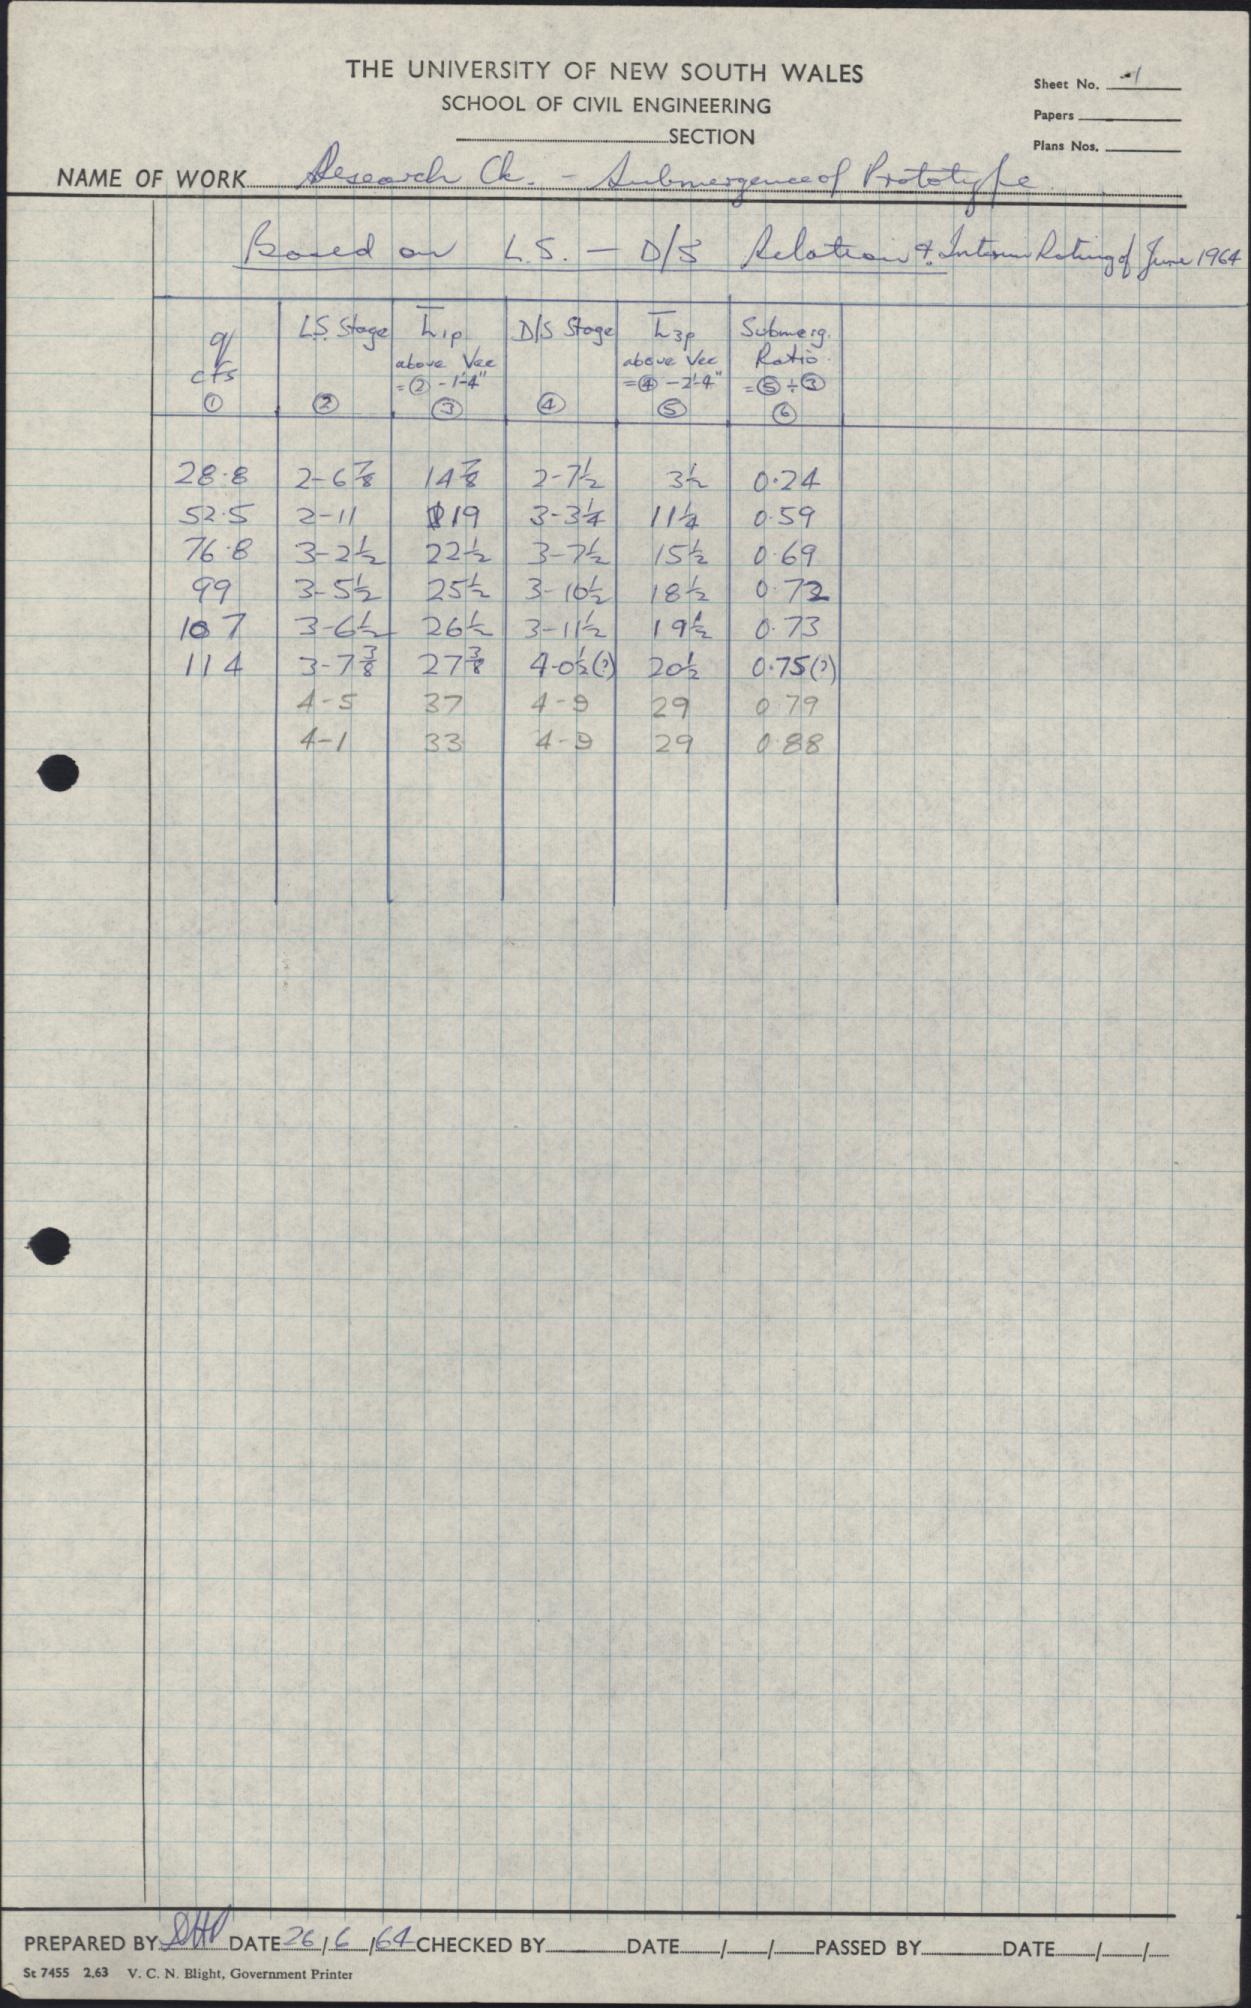 THE UNIVERSITY OF NEW SOUTH WALES
SCHOOL OF CIVIL ENGINEERING
SECTION
Sheet No. 1
Papers
Plans Nos.
NAME OF WORK Research Ck. - Submergence of Prototype
Based on L.S. - D/S Relation & Interim Rating of June 1964
q cfs ① | L.S. Stage ② | h̅1p above Vee = ② - 1'-4" ③ | D/S Stage ④ | h̅3p above Vee = ④ - 2'-4" ⑤ | Submerg. Ratio = ⑤ ÷ ③ ⑥
28.8 2-6⅞ 14⅞ 2-7½ 3½ 0.24
52.5 2-11 19 3-3¼ 11¼ 0.59
76.8 3-2½ 22½ 3-7½ 15½ 0.69
99 3-5½ 25½ 3-10½ 18½ 0.72
107 3-6½ 26½ 3-11½ 19½ 0.73
114 3-7⅜ 27⅜ 4-0½(?) 20½ 0.75(?)
4-5 37 4-9 29 0.79
4-1 33 4-9 29 0.88
PREPARED BY DHP DATE 26/6/64 CHECKED BY DATE / / PASSED BY DATE / /
St 7455 2.63 V. C. N. Blight, Government Printer